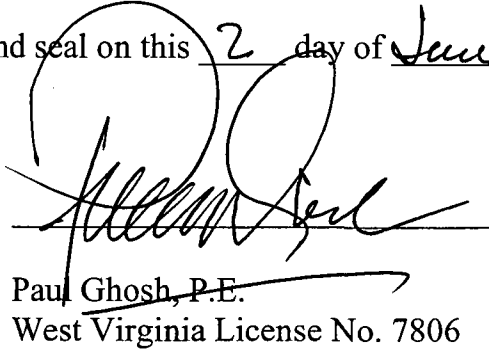 nd seal on this 2 day of June
Paul Ghosh, P.E.
West Virginia License No. 7806